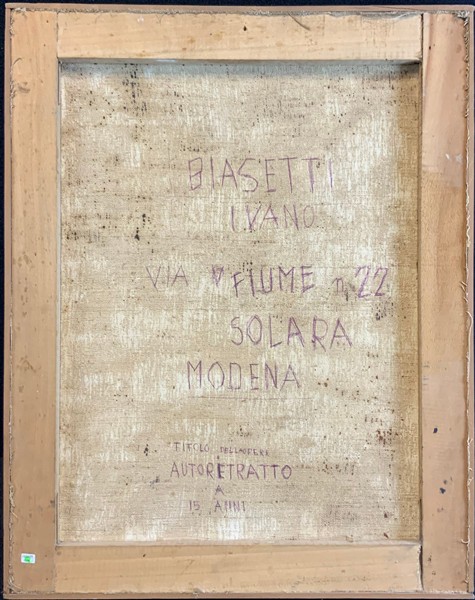 BIASETTI
IVANO
VIA FIUME n. 22
SOLARA
MODENA
TITOLO DELL'OPERA
AUTORETRATTO
A
15 ANNI